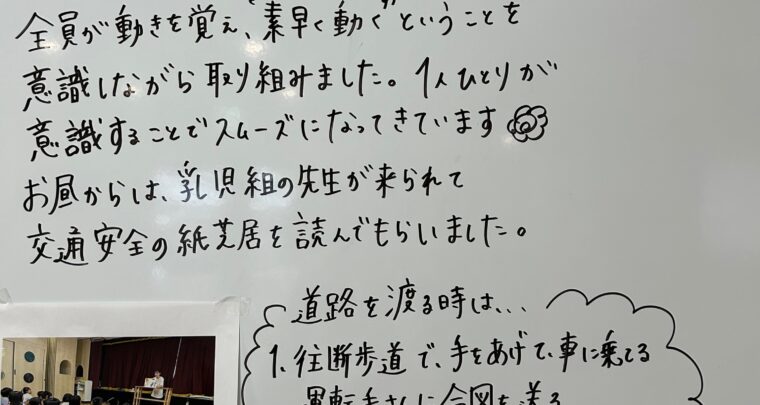 全員が動きを覚え、"素早く動く"ということを
意識しながら取り組みました。1人ひとりが
意識することでスムーズになってきています
お昼からは、乳児組の先生が来られて
交通安全の紙芝居を読んでもらいました。
道路を渡る時は、、、
1. 往断歩道で、手をあげて、車に乗てる
運転手さんに合図を送る